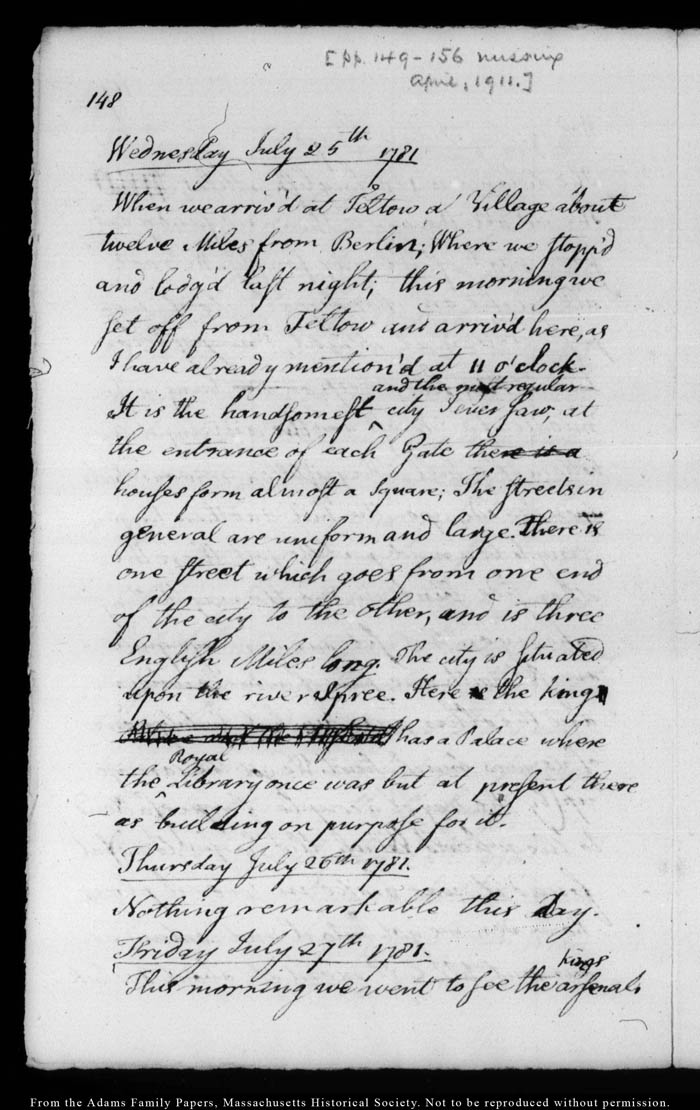 [pp. 149-156 missing
April, 1911.]
148
Wednesday July 25th 1781
When we arriv'd at Teltow a Village about
twelve Miles from Berlin; Where we stopp'd
and lodg'd last night; this morning we
set off from Teltow and arriv'd here, as
I have already mention'd at 11 o'clock.
and the most regular
It is the handsomest ^ city I ever saw, at
the entrance of each Gate there is a
houses form almost a square; The streets in
general are uniform and large. There is
one street which goes from one end
of the city to the other, and is three
English Miles long. The city is situated
upon the river Spree. Here the king
has a Palace where
Royal
the ^ Library once was but at present there
as building on purpose for it.
Thursday July 26th 1781.
Nothing remarkable this day.
Friday July 27th 1781.
kings
This morning we went to see the arsenal,
From the Adams Family Papers, Massachusetts Historical Society. Not to be reproduced without permission.